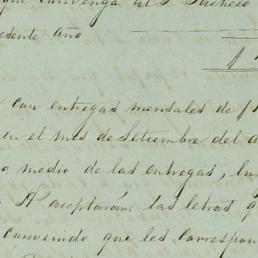 que convenga al S. Pacheco
presente año
Con entregas mensales de $
en el mes de Setiembre del a
o medio de las entregas, lu
Se aceptarán las letras q
convenido que les correspon